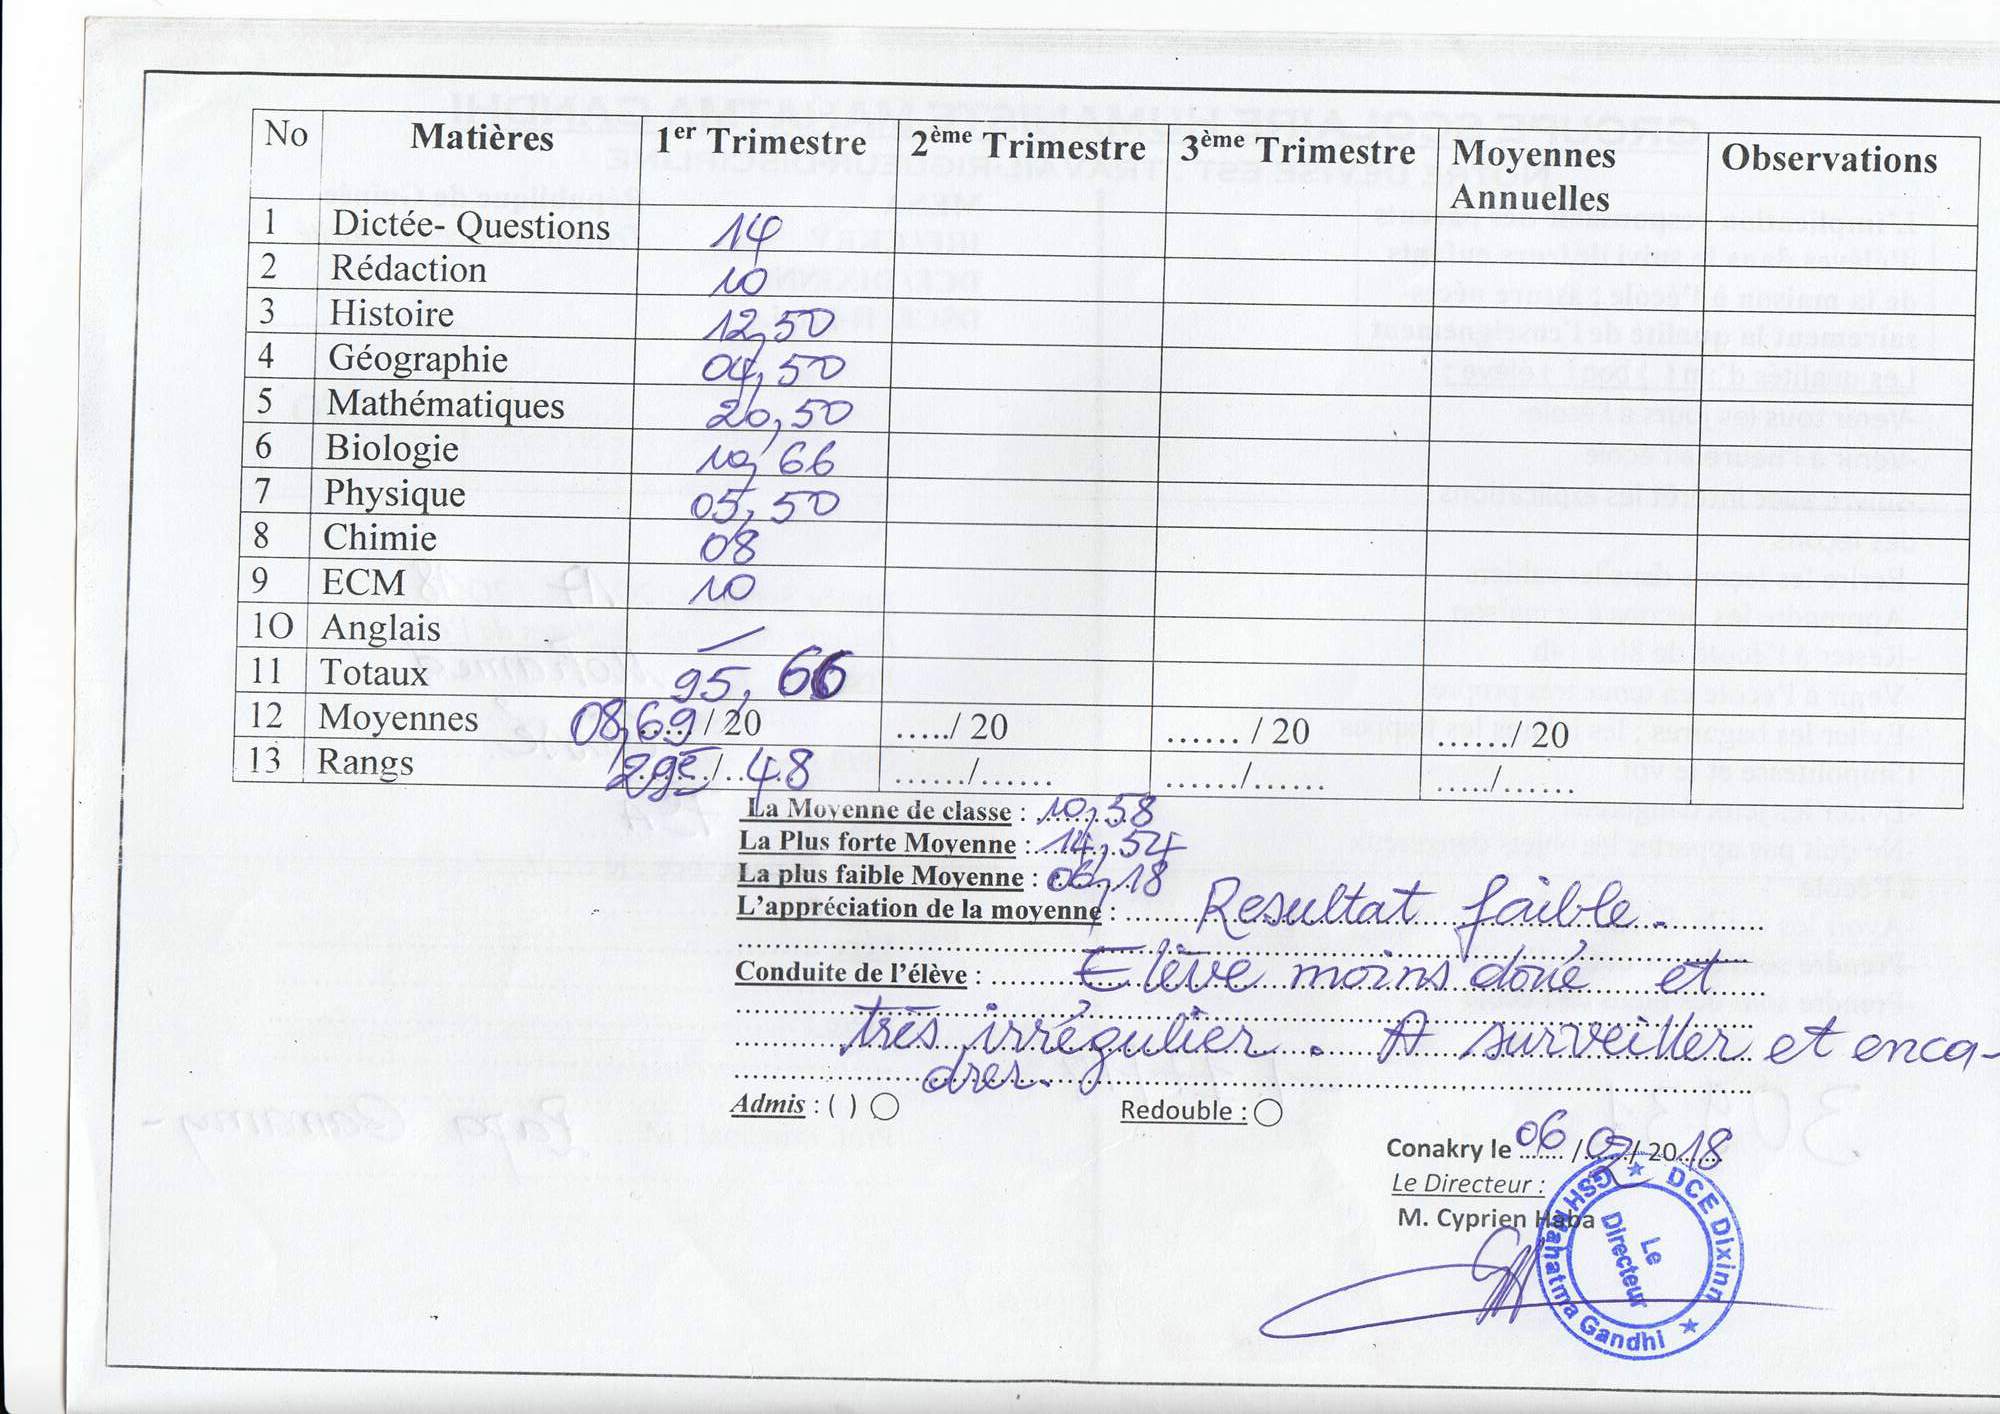 No Matières 1er Trimestre 2ème Trimestre 3ème Trimestre Moyennes Annuelles Observations
1 Dictée- Questions 14
2 Rédaction 10
3 Histoire 12,50
4 Géographie 04,50
5 Mathématiques 20,50
6 Biologie 10,66
7 Physique 05,50
8 Chimie 08
9 ECM 10
1O Anglais —
11 Totaux 95,66
12 Moyennes 08,69 / 20 ...../ 20 ...... / 20 ....../ 20
13 Rangs 29e / 48 ....../...... ....../...... ...../......
La Moyenne de classe : 10,58
La Plus forte Moyenne : 14,54
La plus faible Moyenne : 06,18
L'appréciation de la moyenne : Resultat faible.
Conduite de l'élève : Elève moins doué et
très irrégulier. A surveiller et enca-
drer.
Admis : ( )
Redouble :
Conakry le 06 / 02 / 2018
Le Directeur :
M. Cyprien Haba
DCE Dixinn
GSH Mahatma Gandhi
Le
Directeur